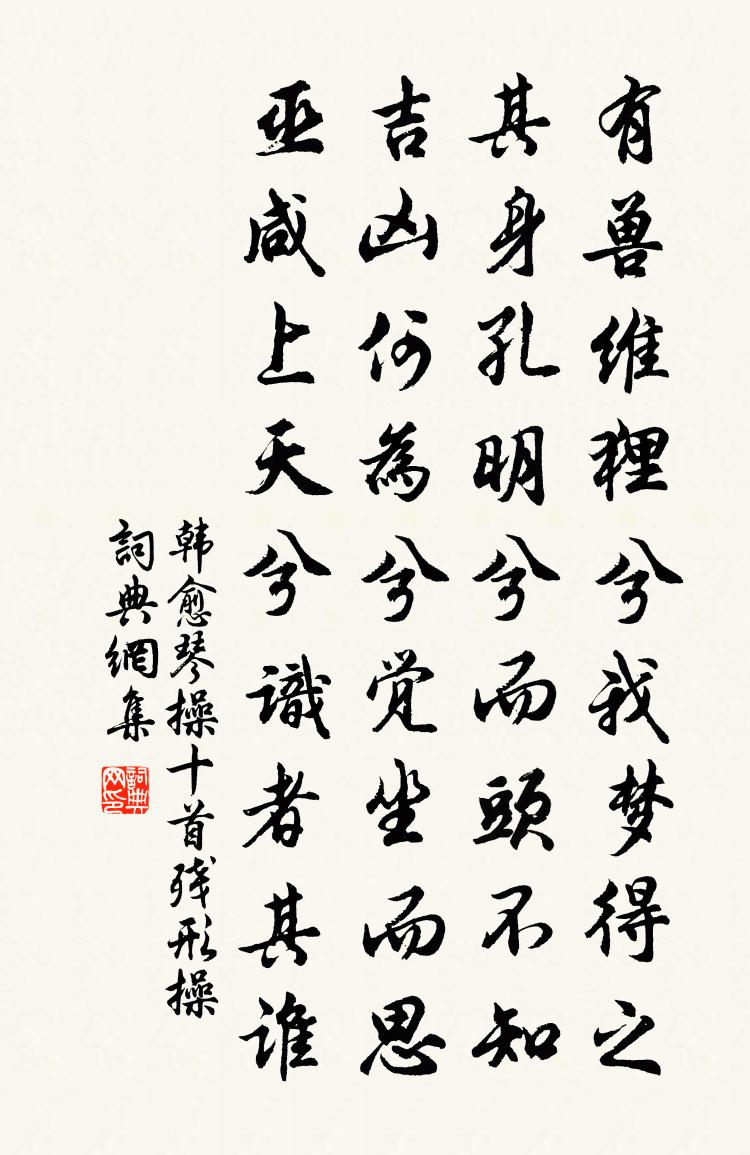 有兽维狸兮我梦得之
其身孔明兮而頭不知
吉凶何為兮觉坐而思
巫咸上天兮識者其谁
韩愈琴操十首残形操
詞典網集
詞典网印